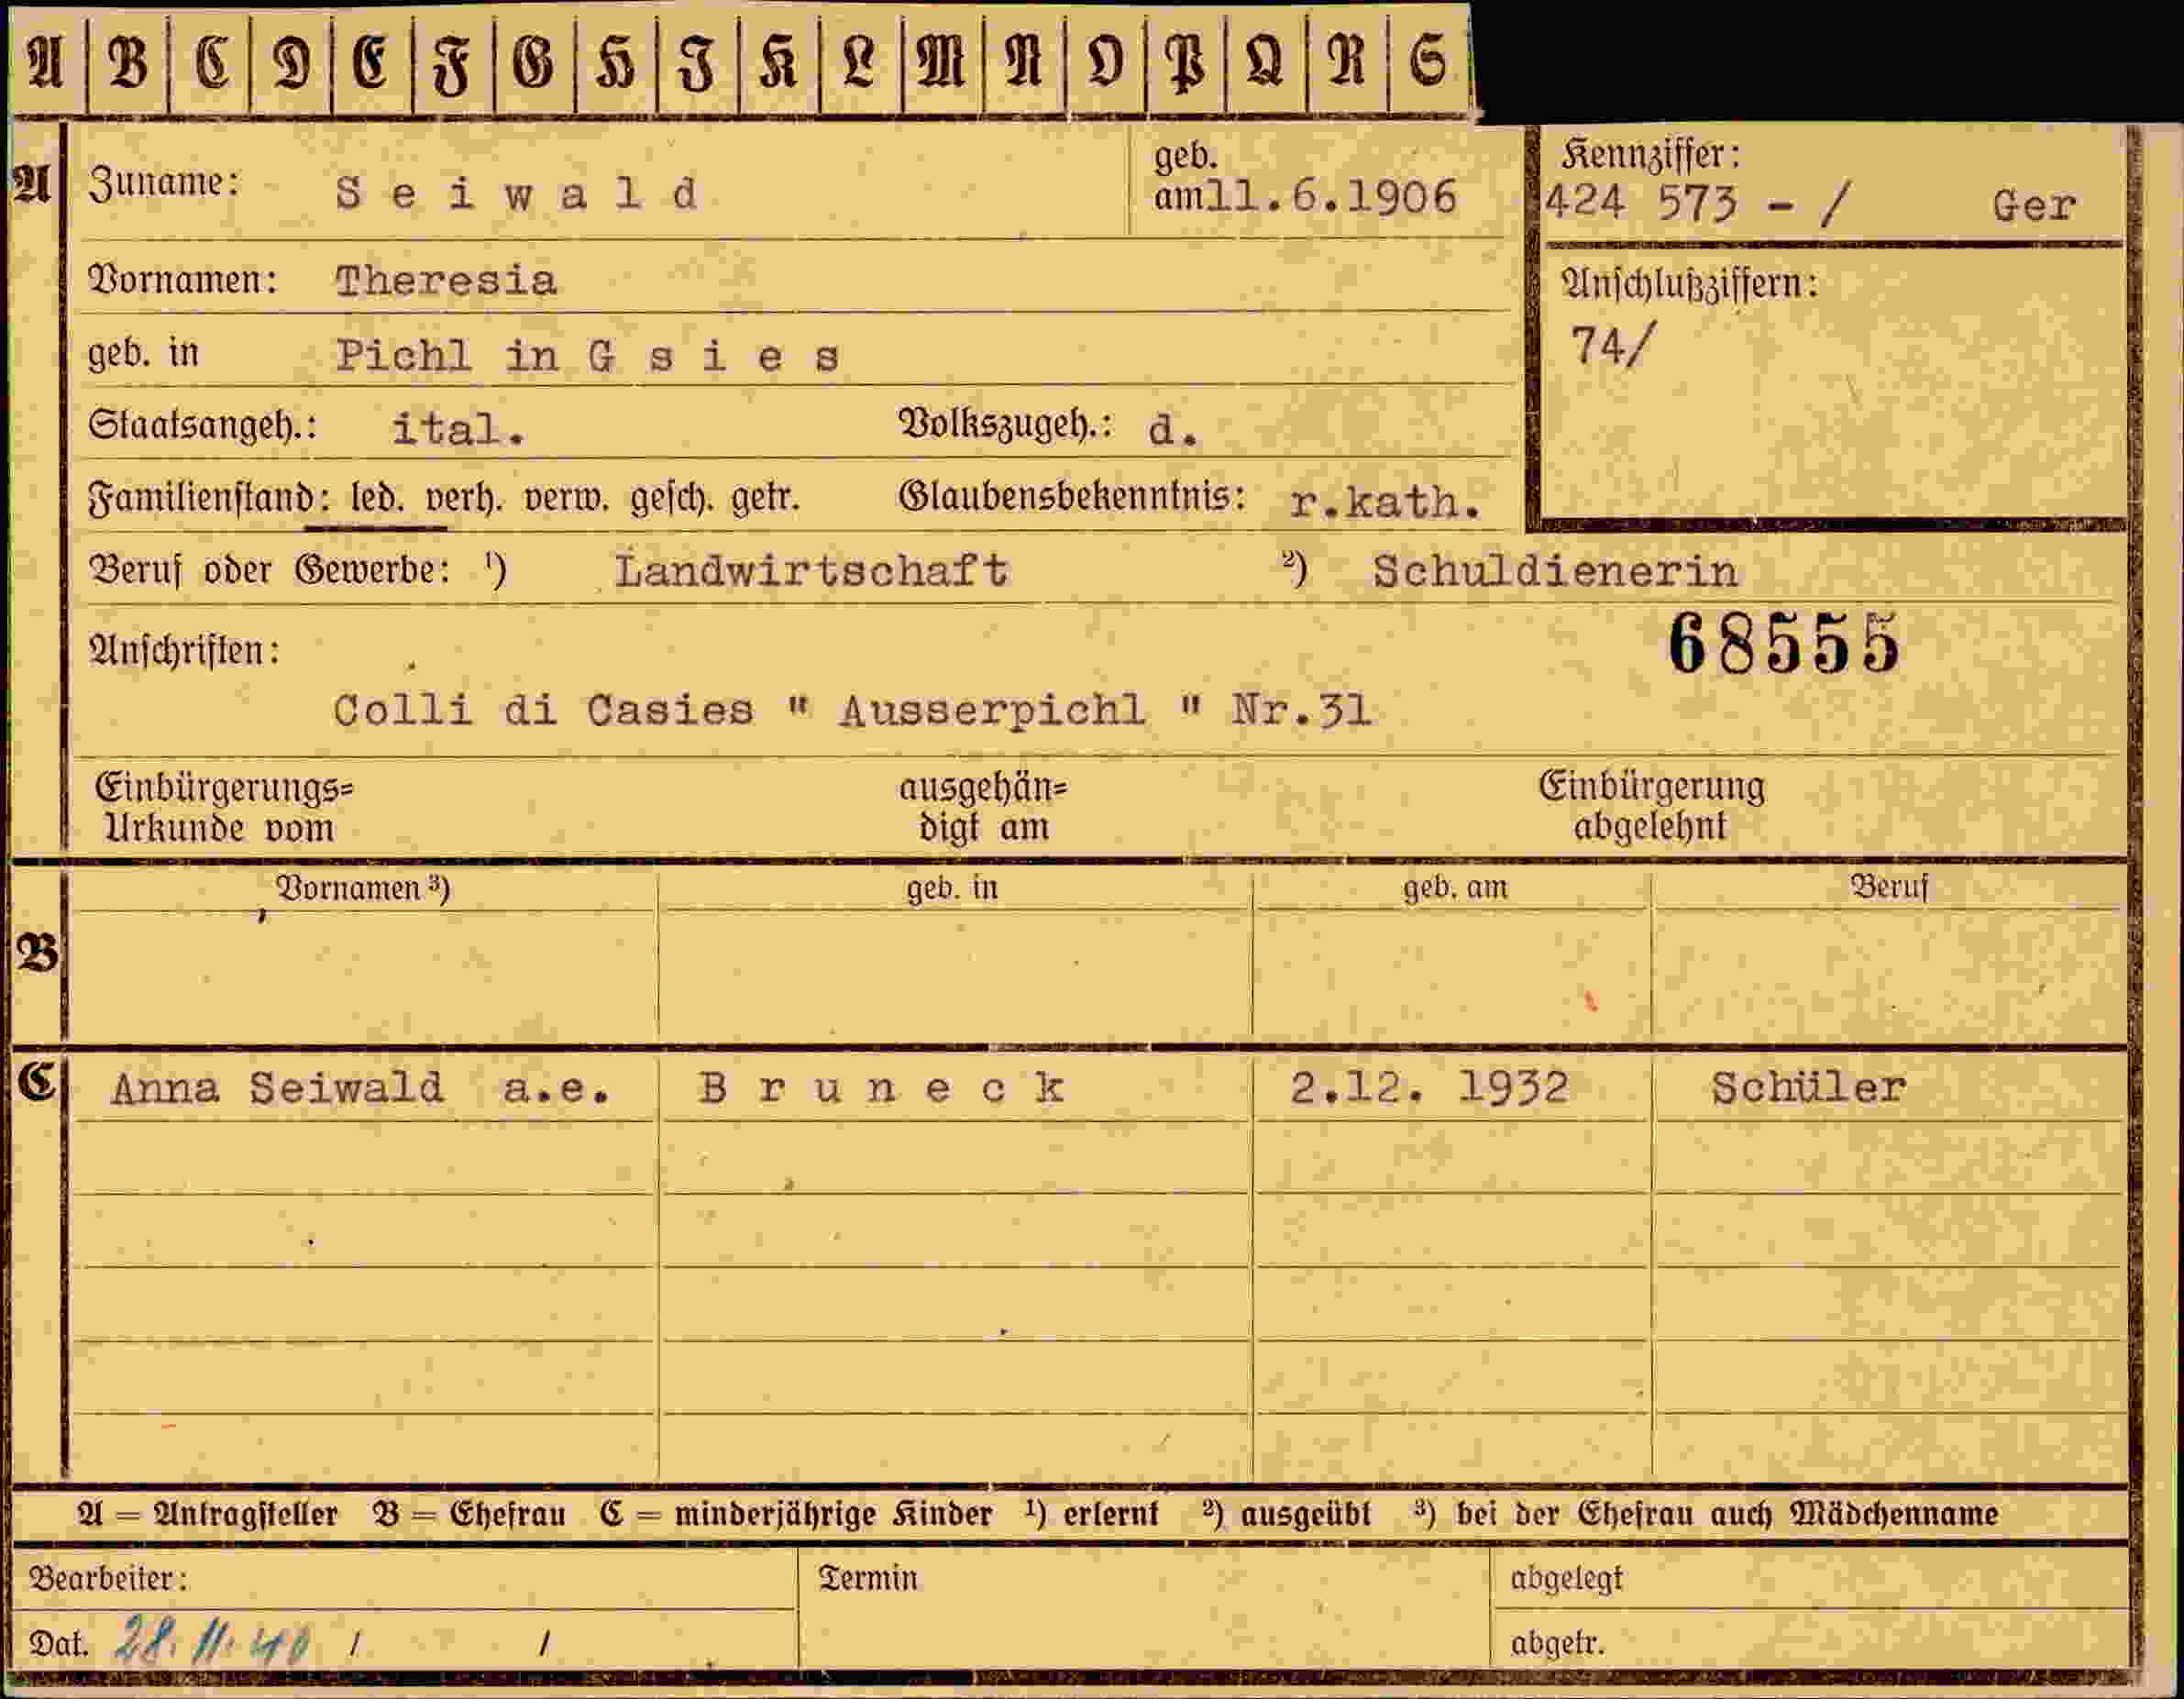 A B C D E F G H I K L M N O P Q R S
A Zuname: Seiwald geb. am 11.6.1906 Kennziffer: 424 573 - / Ger
Vornamen: Theresia Anschlußziffern:
geb. in Pichl in Gsies 74/
Staatsangeh.: ital. Volkszugeh.: d.
Familienstand: led. verh. verw. gesch. getr. Glaubensbekenntnis: r.kath.
Beruf oder Gewerbe: ¹) Landwirtschaft ²) Schuldienerin
Anschriften: 68555
Colli di Casies " Ausserpichl " Nr.31
Einbürgerungs= ausgehän= Einbürgerung
Urkunde vom digt am abgelehnt
Vornamen ³) geb. in geb. am Beruf
B
C Anna Seiwald a.e. Bruneck 2.12. 1932 Schüler
A = Antragsteller B = Ehefrau C = minderjährige Kinder ¹) erlernt ²) ausgeübt ³) bei der Ehefrau auch Mädchenname
Bearbeiter: Termin abgelegt
Dat. 28.11.40 / / abgetr.